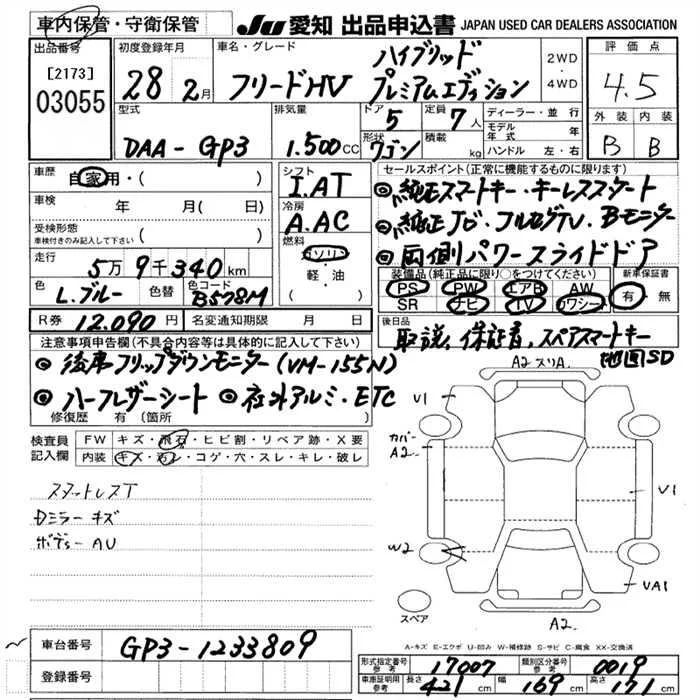 車内保管・守衛保管 JU 愛知 出品申込書 JAPAN USED CAR DEALERS ASSOCIATION
出品番号 初度登録年月 車名・グレード ハイブリッド 2WD 評価点
[2173] 28 2月 フリードHV プレミアムエディション ・ 4WD 4.5
03055 型式 排気量 ドア 5 定員 7人 ディーラー・並行 外装 内装
モデル年式 年
DAA-GP3 1.500cc 形状 ワゴン 積載 kg ハンドル 左・右 B B
車歴 自家用・( ) シフト I.AT セールスポイント(正常に機能するものに限ります)
◎純正スマートキー・キーレススタート
車検 年 月(日) 冷房 A.AC ◎純正ナビ・フルセグTV・Bモニター
受検形態 車検付きのみ記入して下さい 燃料 ガソリン ◎両側パワースライドドア
走行 5万9千340km 軽・油 装備品(純正品に限り○をつけてください) 新車保証書
色 L.ブルー 色替 色コード B578M PS PW エアB AW 有・無
SR ナビ TV ワワシー
R券 12.090円 名変通知期限 月 日 後日品 取説、保証書、スペアスマートキー
注意事項申告欄(不具合内容等は具体的に記入して下さい) 地図SD
◎後席フリップダウンモニター(VM-155N) A2スリA.
◎ハーフレザーシート ◎社外アルミ・ETC V1
修復歴 有(箇所 )
検査員記入欄 FW キズ・飛石・ヒビ割・リペア跡・X要 カバー A2.
内装 キズ・汚レ・コゲ・穴・スレ・キレ・破レ
スタットレスT V1
Dミラーキズ
ボディーAU W2
VA1
スペア A2.
A-キズ E-エクボ U-凹み W-補修跡 S-サビ C-腐食 XX-交換済
車台番号 GP3-1233809
形式指定番号 参考 17007 類別区分番号 参考 0019
登録番号 車庫証明用 参考 長さ 421cm 幅 169cm 高さ 171cm